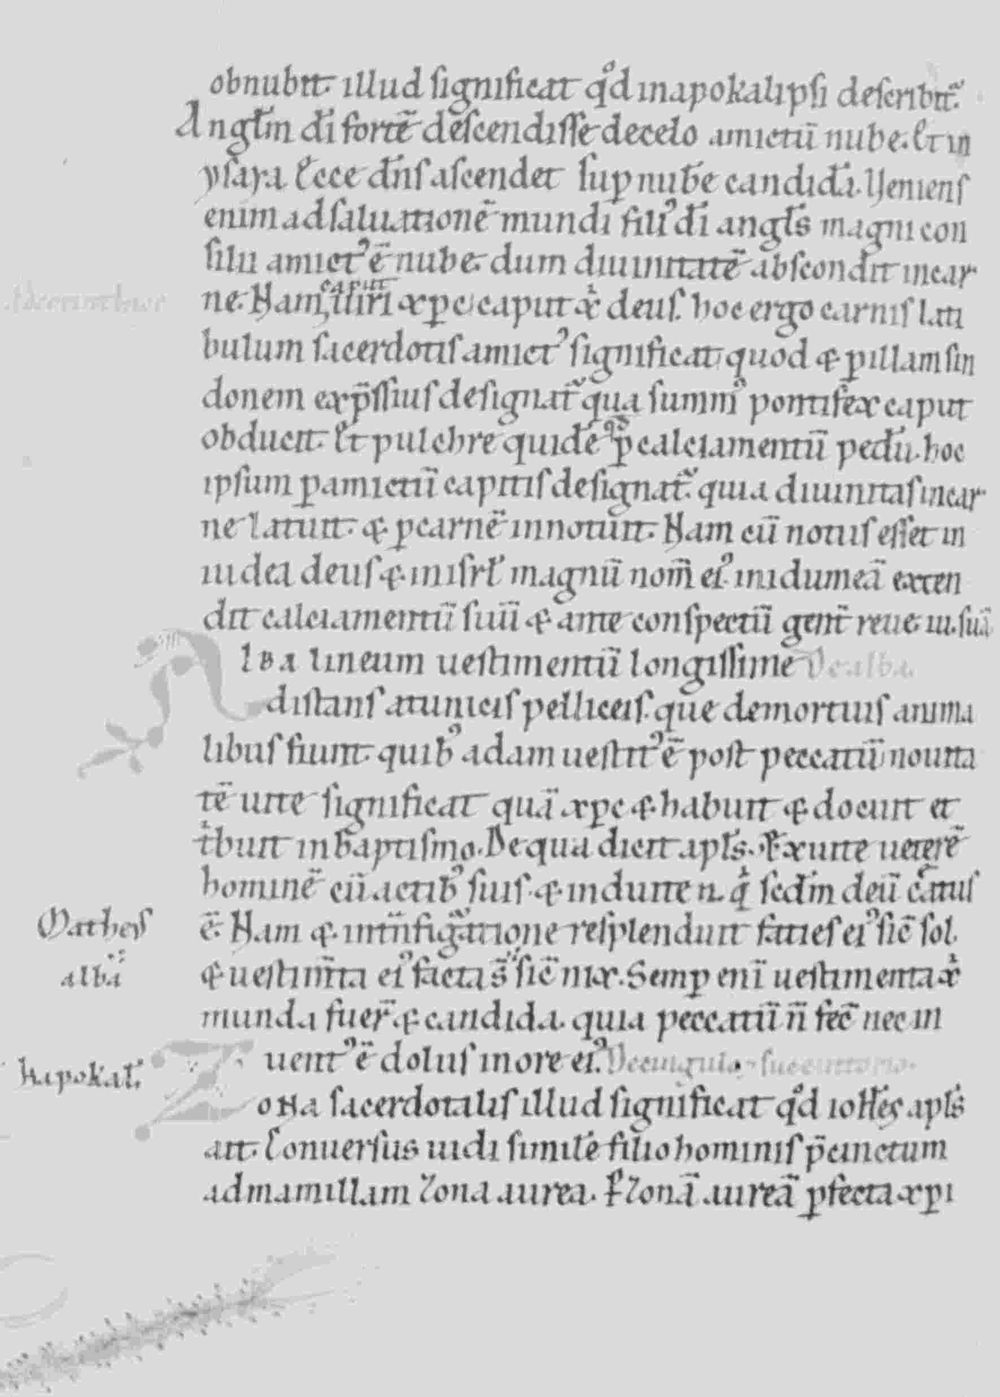 obnubit. illud significat qd̾ in apokalipsi describit᷑.
Angłm dī fortē descendisse de celo amictū nube. Et in
ysaya. Ecce dn̄s ascendet sup nubē candidā. Veniens
enim ad saluationē mundi fili᷒ dī angłs magni con
silii amict᷒ ē nube. dum diuinitatē abscondit in car
ne. Nam caput uiri xp̄c caput x͛ deus. hoc ergo carnis lati
bulum sacerdotis amict᷒ significat quod & p illam sin
donem exp̄ssius designat᷑ qua summ᷒ pontifex caput
obducit. Et pulchre quidē qd̾ p calciamentū pedū. hoc
ipsum p amictū capitis designat᷑. quia diuinitas in car
ne latuit. & p carnē innotuit. Nam cū notus esset in
iudea deus & in isrł magnū nom̄ ei᷒. in idumeā exten
dit calciamentū suū & ante conspectū gent̄ reue. iu. suā
Alba lineum uestimentū longissime De alba.
distans a tunicis pelliceis. que de mortuis anima
libus fiunt. quib᷒ adam uestit᷒ ē post peccatū nouita
tē uite significat quā xp̄c & habuit & docuit et
t͛buit in baptismo. De qua dicit apłs. Exuite ueterē
hominē cū actib᷒ suis. & induite n. q͛ scd̄m deū c͛atus
ē. Nam & in tn̄sfigatione resplenduit facies ei᷒ sic̄ sol.
& uestim̄ta ei᷒ facta s̄ sic̄ nix. Semp enī uestimenta x͛
munda fuer̄ & candida. quia peccatū n̄ fec̄ nec in
uent᷒ ē dolus in ore ei᷒. De cingulo.
Zona sacerdotalis illud significat qd̾ ioħes apłs
ait. Conuersus uidi similē filio hominis p̄cinctum
ad mamillam zona aurea. P zonā aureā pfecta xp̄i
Matheus
alba
In apokał.